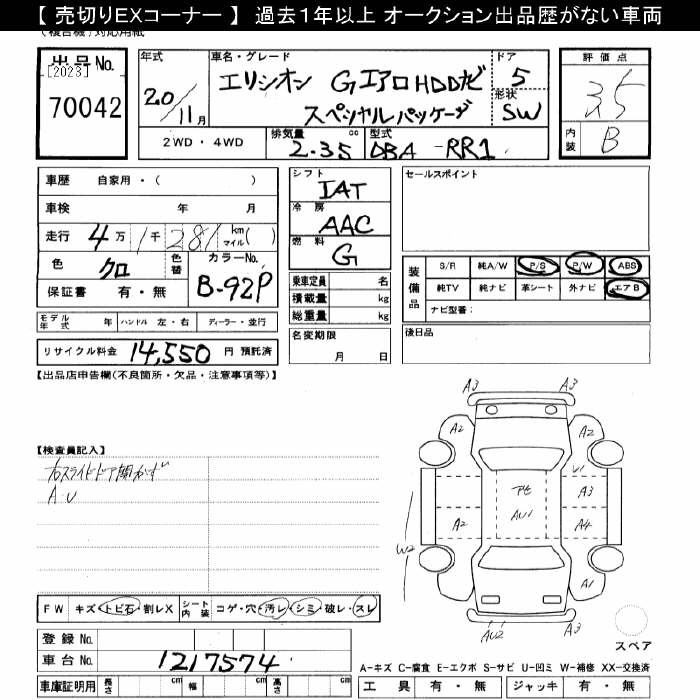 【 売切りEXコーナー 】 過去１年以上 オークション出品歴がない車両
(複合機)対応用紙
出品No.
[2023]
70042
年式
20/11月
車名・グレード
エリシオン GエアロHDDナビ
スペシャルパッケージ
ドア
5
形状
SW
2WD・4WD
排気量 2.35 cc
型式 DBA-RR1
評価点
3.5
内装 B
車歴 自家用・( )
車検 年 月
走行 4万1千281km マイル( )
色 クロ 色替
カラーNo. B-92P
保証書 有・無
モデル年式 年 ハンドル 左・右 ディーラー・並行
リサイクル料金 14,550 円 預託済
シフト
IAT
冷房
AAC
燃料
G
乗車定員 名
積載量 kg
総重量 kg
名変期限
月 日
セールスポイント
装備品
S/R 純A/W P/S P/W ABS
純TV 純ナビ 革シート 外ナビ エアB
ナビ型番：
後日品
【出品店申告欄(不良箇所・欠品・注意事項等)】
【検査員記入】
右スライドドア開かず
A.U
A3 A3
A2 A2
U1
A3
A2 A4
AU1
W2
A1
AU2 A3
スペア
FW キズ・トビ石・割レX
シート内装 コゲ・穴・汚レ・シミ・破レ・スレ
登録No.
車台No. 1217574
車庫証明用 長さ cm 幅 cm 高さ cm
A-キズ C-腐食 E-エクボ S-サビ U-凹ミ W-補修 XX-交換済
工具 有・無 ジャッキ 有・無